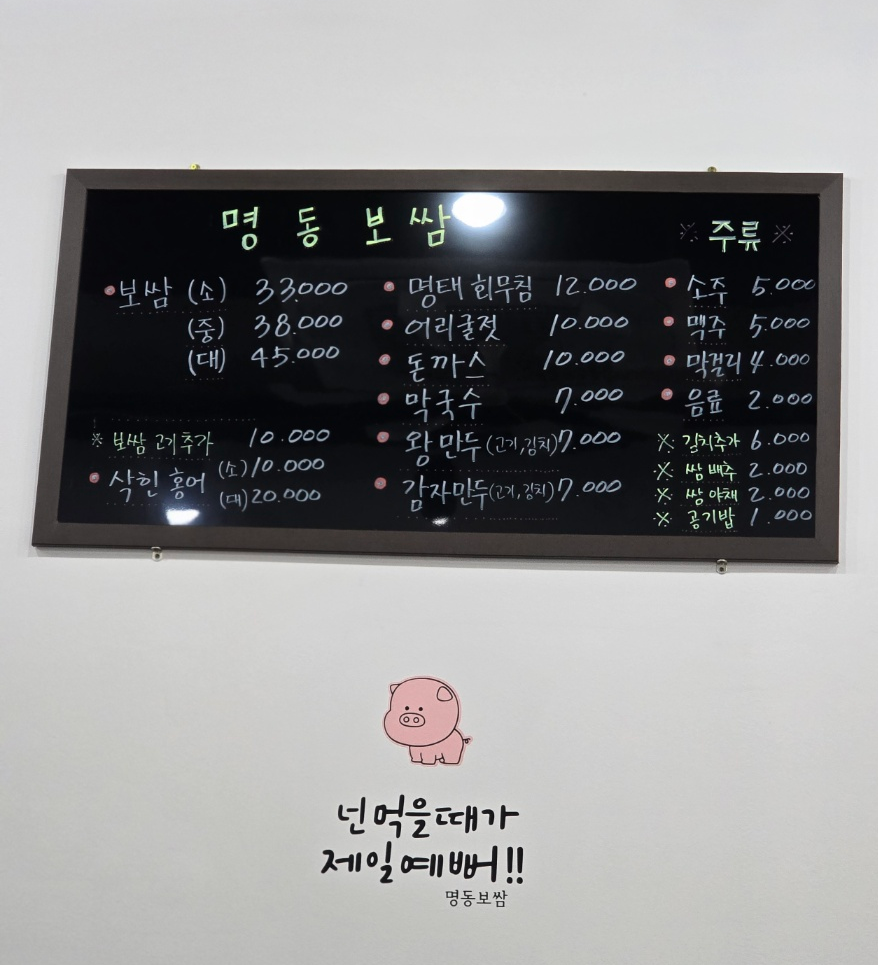 명동보쌈
※ 주류 ※
• 보쌈 (소) 33.000
(중) 38.000
(대) 45.000
※ 보쌈 고기추가 10.000
• 삭힌 홍어 (소) 10.000
(대) 20.000
• 명태 회무침 12.000
• 어리굴젓 10.000
• 돈까스 10.000
• 막국수 7.000
• 왕만두 (고기,김치) 7.000
• 감자만두 (고기,김치) 7.000
• 소주 5.000
• 맥주 5.000
• 막걸리 4.000
• 음료 2.000
※ 김치추가 6.000
※ 쌈 배추 2.000
※ 쌈 야채 2.000
※ 공기밥 1.000
넌 먹을때가
제일 예뻐!!
명동보쌈